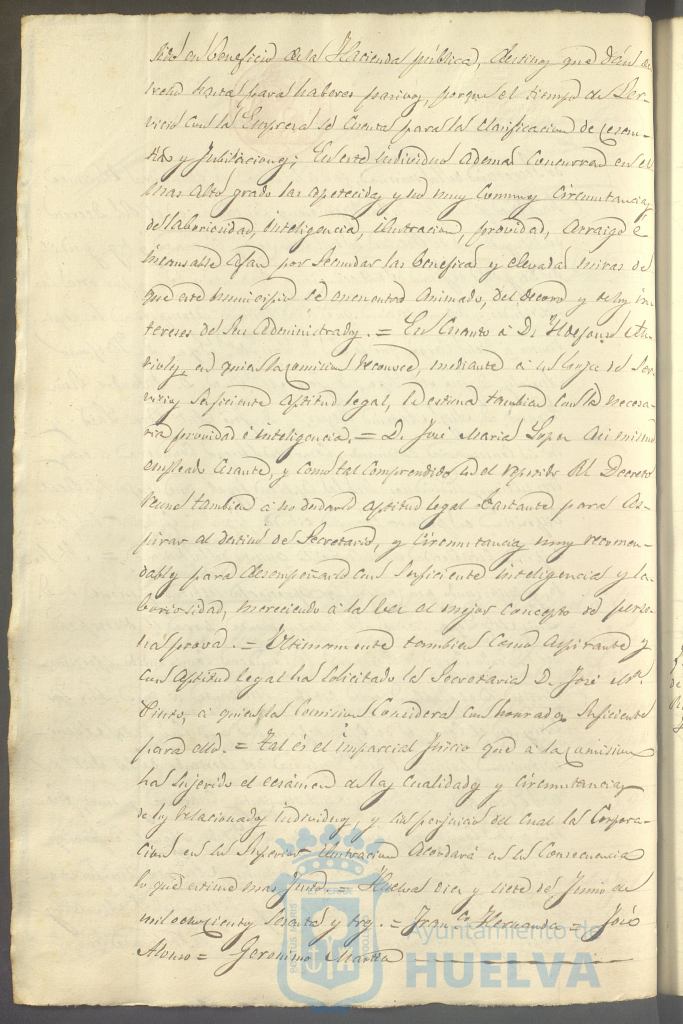 en beneficio de la Hacienda pública, destinos que dan
hasta para haberes pasivos, porque el tiempo de Ser-
vicio con la Empresa se cuenta para la clasificacion de cesan-
tias y Jubilaciones; En este individuo ademas concurren en el
mas alto grado las apetecidas y no muy comunes circunstancias
de laboriosidad, inteligencia, ilustracion, providad, arraigo é
incansable afan por secundar las beneficas y elevadas miras de
que este municipio se encuentra animado, del decoro y de los in-
tereses de sus Administrados. = En cuanto á D. Ildefonso
en quien la comision reconoce, mediante á sus de Ser-
vicios suficiente aptitud legal, le estima tambien con la necesa-
ria providad é inteligencia. = D. José Maria Lopez asi mismo
empleado Cesante, y como tal comprendido en el referido Rl. Decreto
reune tambien á no dudarlo aptitud legal bastante para as-
pirar al destino de Secretario, y circunstancias muy recomen-
dables para desempeñarlo con suficiente inteligencia y la-
boriosidad, mereciendo á la vez el mejor concepto de perso-
na prova. = Ultimamente tambien como aspirante y
con aptitud legal ha solicitado la Secretaria D. José Ma.
Pinto, á quien la Comision considera con honradez suficiente
para ello. = Tal es el imparcial Juicio que á la comision
ha sujerido el ecsámen de las cualidades y circunstancias
de los relacionados individuos, y sin perjuicio del cual la Corpora-
cion en su Superior ilustracion acordará en su consecuencia
lo que estime mas justo. = Huelva diez y siete de Junio de
mil ochocientos sesenta y tres. = Franco. Hernandez = José
Alonso = Geronimo Martin
Ayuntamiento de
HUELVA